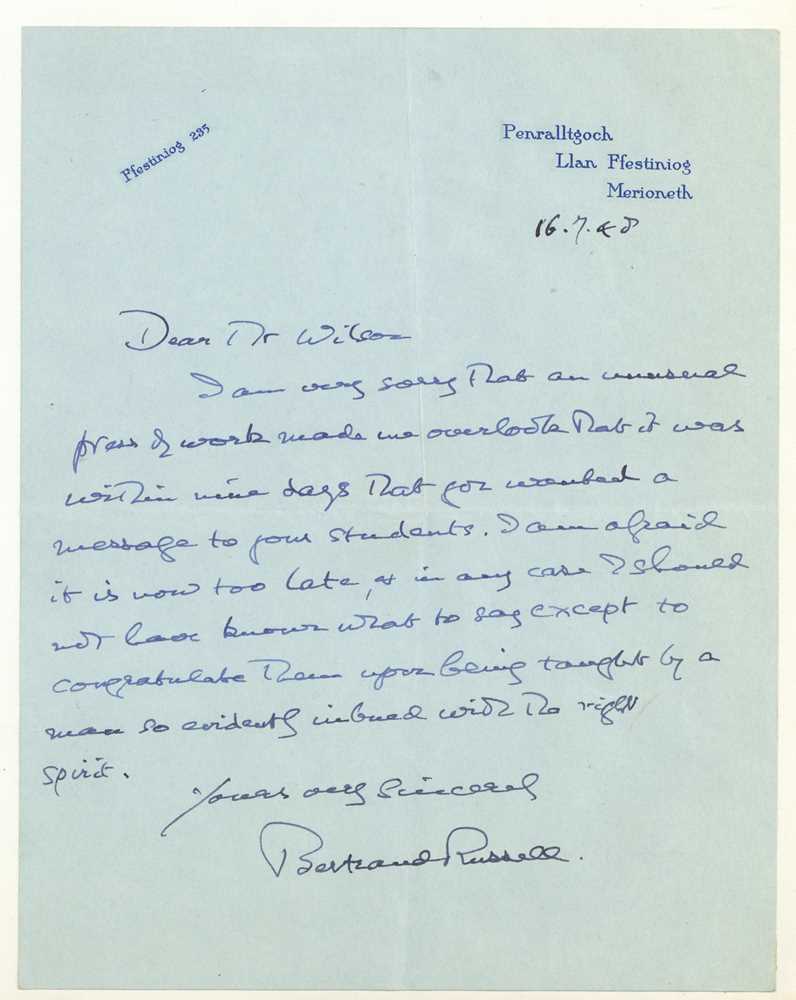 Ffestiniog 235
Penralltgoch
Llan Ffestiniog
Merioneth
16.7.48
Dear Dr Wilson
I am very sorry that an unusual
press of work made me overlook that it was
within nine days that you wanted a
message to your students. I am afraid
it is now too late, & in any case I should
not have known what to say except to
congratulate them upon being taught by a
man so evidently imbued with the right
spirit.
Yours very sincerely
Bertrand Russell.